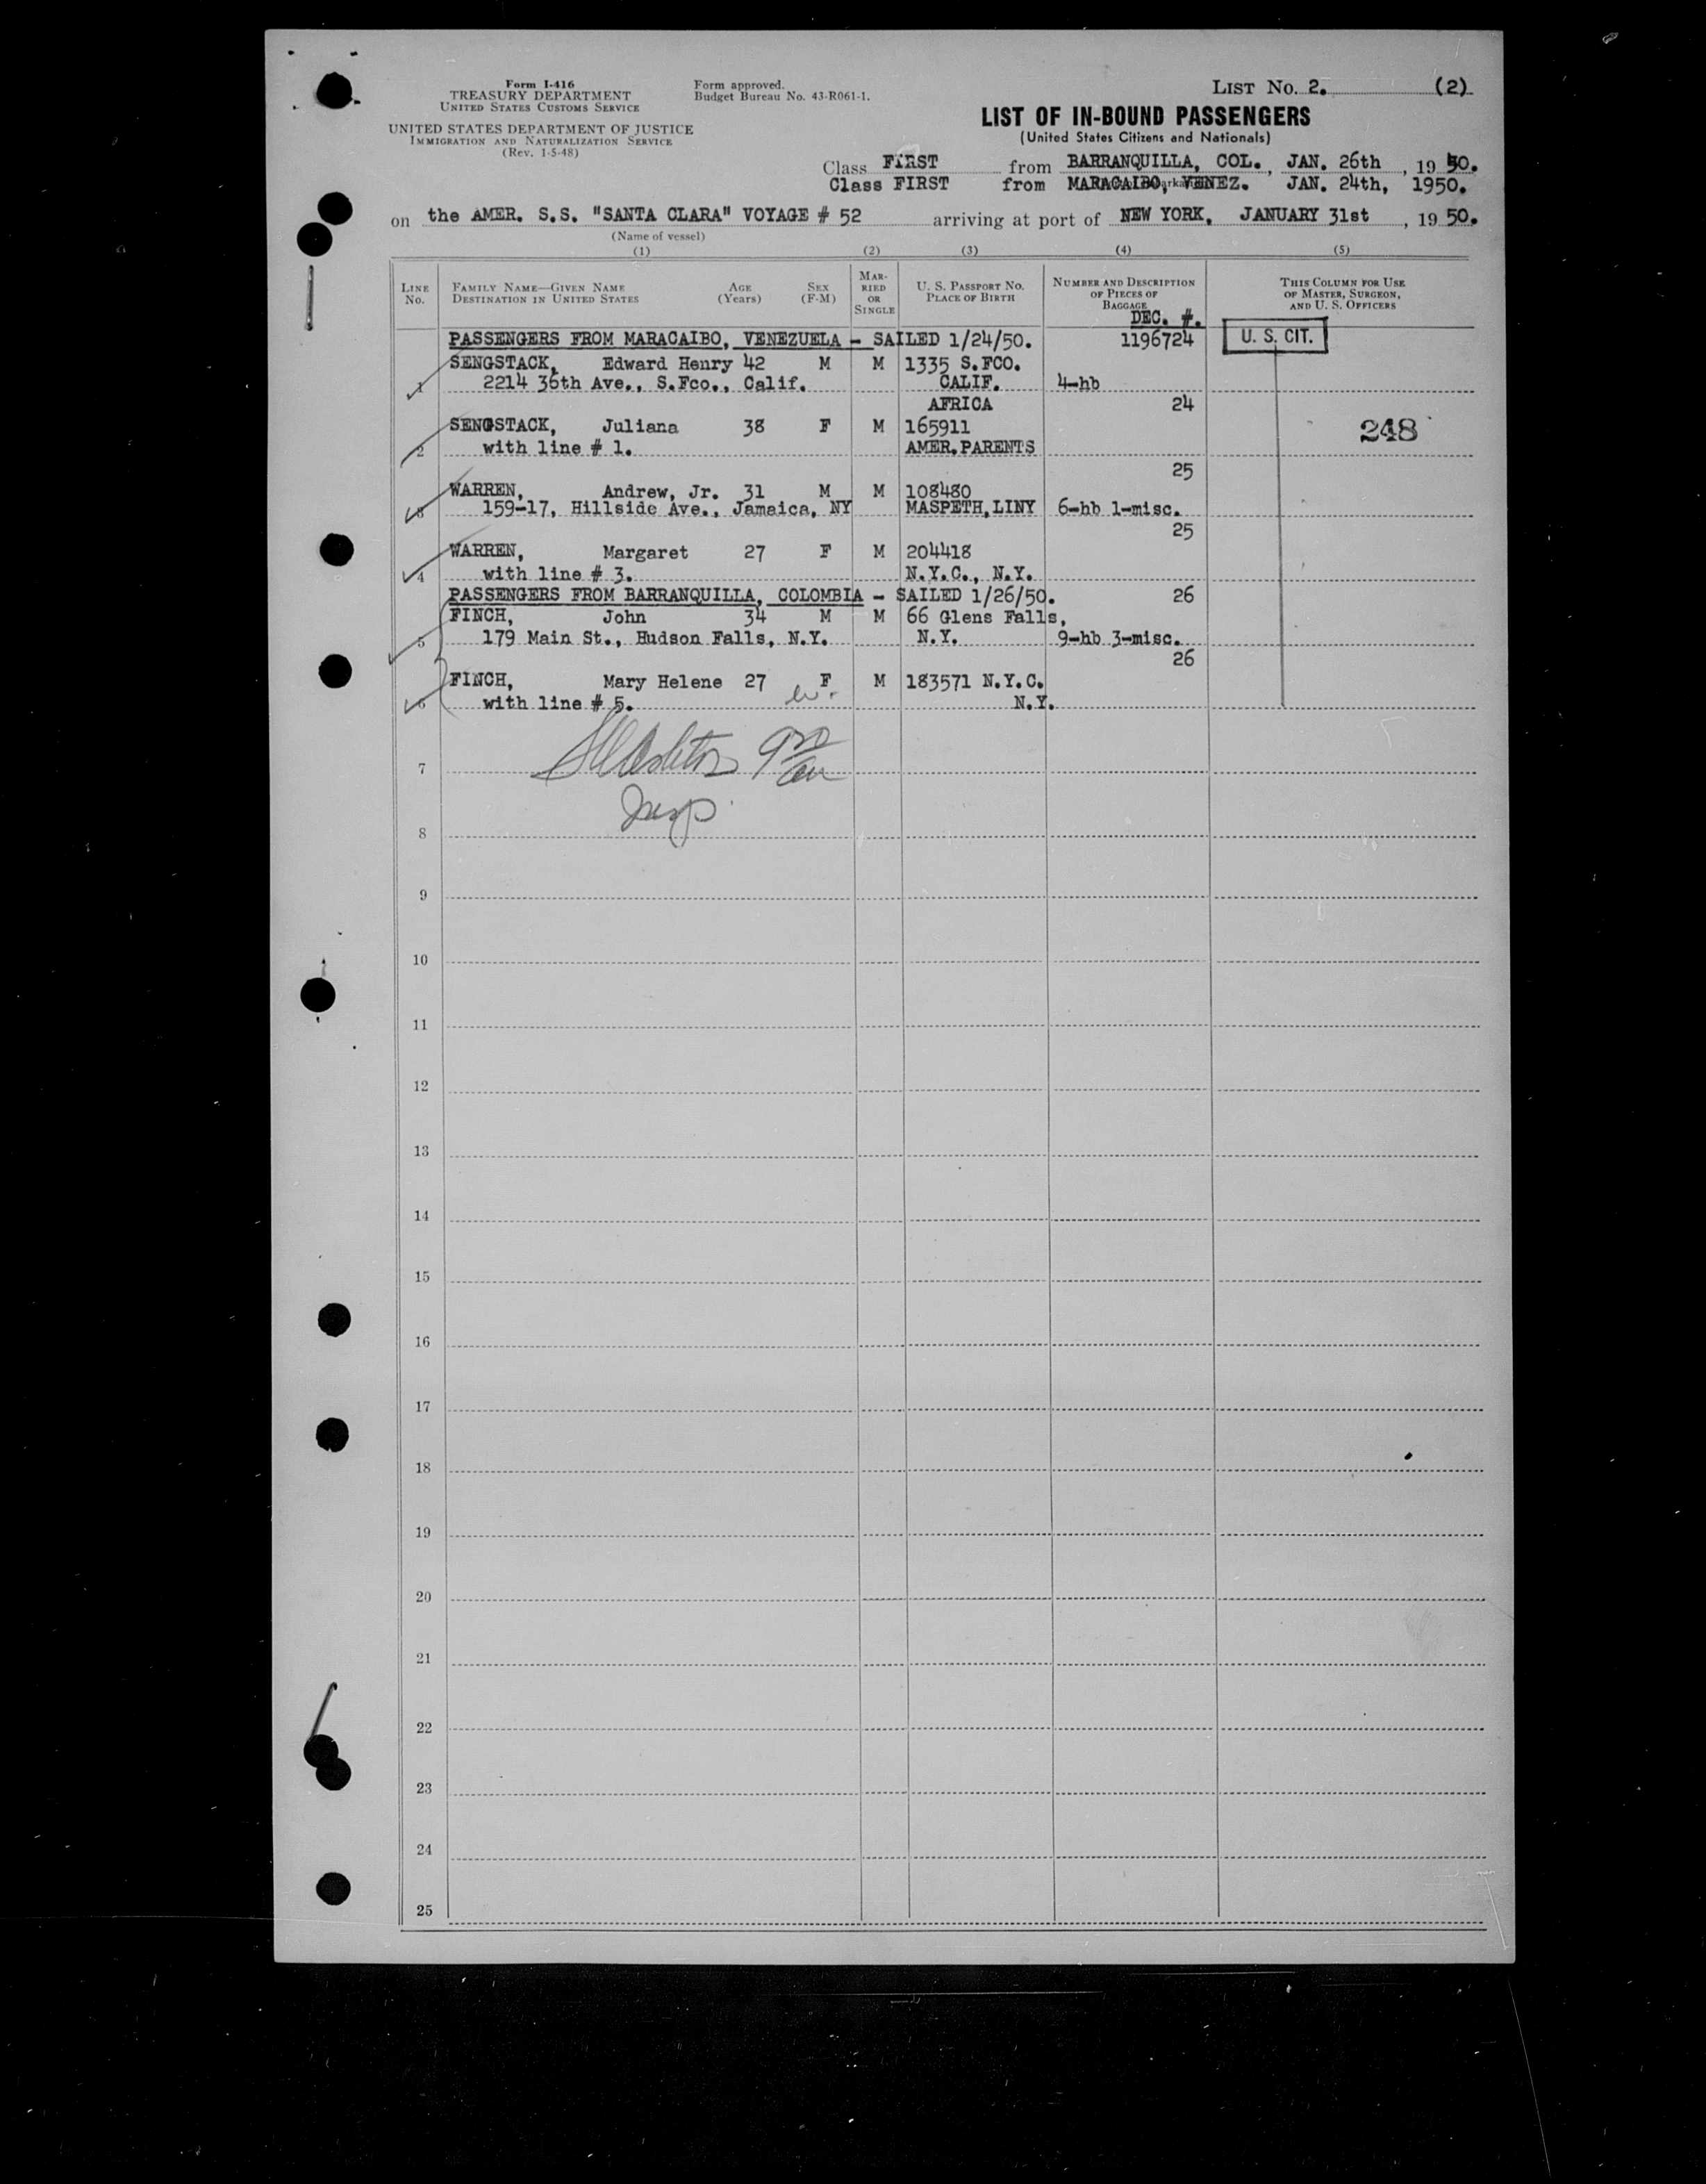 Form I-416
TREASURY DEPARTMENT
UNITED STATES CUSTOMS SERVICE
UNITED STATES DEPARTMENT OF JUSTICE
IMMIGRATION AND NATURALIZATION SERVICE
(Rev. 1-5-48)
Form approved.
Budget Bureau No. 43-R061-1.
LIST No. 2. (2)
LIST OF IN-BOUND PASSENGERS
(United States Citizens and Nationals)
Class FIRST from BARRANQUILLA, COL., JAN. 26th, 1950.
Class FIRST from MARACAIBO, VENEZ. JAN. 24th, 1950.
on the AMER. S.S. "SANTA CLARA" VOYAGE # 52 arriving at port of NEW YORK, JANUARY 31st, 1950.
(Name of vessel)
(1) (2) (3) (4) (5)
LINE No. FAMILY NAME—GIVEN NAME DESTINATION IN UNITED STATES AGE (Years) SEX (F-M) MARRIED OR SINGLE U. S. PASSPORT NO. PLACE OF BIRTH NUMBER AND DESCRIPTION OF PIECES OF BAGGAGE THIS COLUMN FOR USE OF MASTER, SURGEON, AND U. S. OFFICERS
DEC. #.
PASSENGERS FROM MARACAIBO, VENEZUELA - SAILED 1/24/50. 1196724 U. S. CIT.
SENGSTACK, Edward Henry 42 M M 1335 S.FCO.
1 2214 36th Ave., S.Fco., Calif. CALIF. 4-hb
AFRICA 24
SENGSTACK, Juliana 38 F M 165911 248
2 with line # 1. AMER.PARENTS
25
WARREN, Andrew, Jr. 31 M M 108480
3 159-17, Hillside Ave., Jamaica, NY MASPETH,LINY 6-hb 1-misc.
25
WARREN, Margaret 27 F M 204418
4 with line # 3. N.Y.C., N.Y.
PASSENGERS FROM BARRANQUILLA, COLOMBIA - SAILED 1/26/50. 26
FINCH, John 34 M M 66 Glens Falls,
5 179 Main St., Hudson Falls, N.Y. N.Y. 9-hb 3-misc.
26
FINCH, Mary Helene 27 F M 183571 N.Y.C.
6 with line # 5. N.Y.
7
Insp.
8
9
10
11
12
13
14
15
16
17
18
19
20
21
22
23
24
25